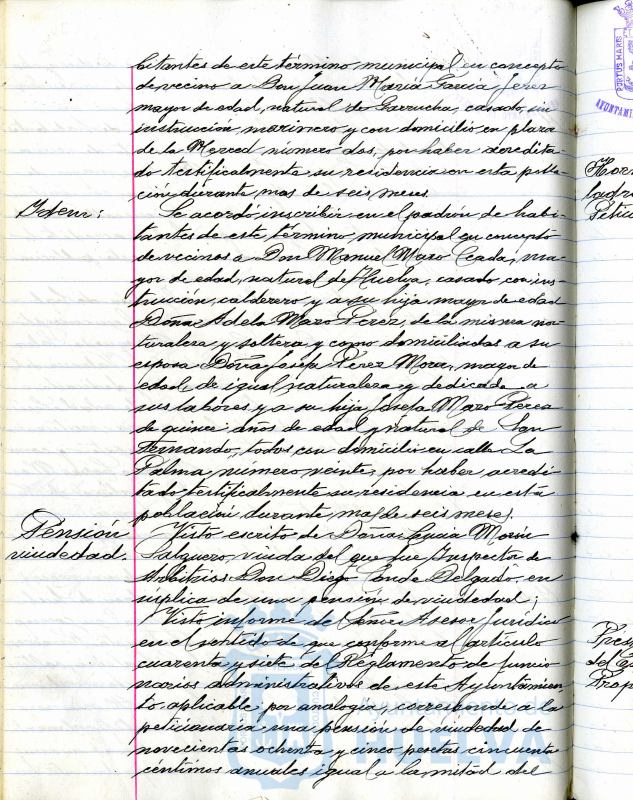 bitantes de este término municipal en concepto
de vecino a Don Juan María García Jerez
mayor de edad, natural de Garrucha, casado, sin
instrucción, marinero y con domicilio en plaza
de la Merced número dos, por haber acredita-
do testificalmente su residencia en esta pobla-
ción durante mas de seis meses.
Idem:
Se acordó inscribir en el padrón de habi-
tantes de este término municipal en concepto
de vecinos a Don Manuel Mazo Ceada, ma-
yor de edad, natural de Huelva, casado, con ins-
trucción, calderero, y a su hija mayor de edad
Doña Adela Mazo Perez, de la misma na-
turaleza y soltera, y como domiciliadas a su
esposa Doña Josefa Perez Mora, mayor de
edad, de igual naturaleza y dedicada a
sus labores y a su hija Josefa Mazo Perez
de quince años de edad y natural de San
Fernando, todos con domicilio en calle La
Palma, número veinte, por haber acredi-
tado testificalmente su residencia en esta
población durante mas de seis meses.
Pensión
viudedad.
Visto escrito de Doña Morón
Salguero, viuda del que fue Inspector de
Arbitrios Don Diego Conde Delgado, en
súplica de una pensión de viudedad;
Visto informe del Señor Asesor Jurídico
en el sentido de que conforme al artículo
cuarenta y siete del Reglamento de funcio-
narios administrativos de este Ayuntamien-
to, aplicable por analogía, corresponde a la
peticionaria una pensión de viudedad de
novecientas ochenta y cinco pesetas cincuenta
céntimos anuales igual a la mitad del
PORTUS MARIS